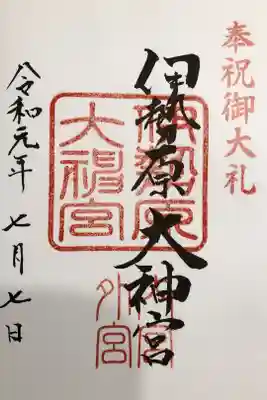 奉祝御大礼
伊勢原大神宮
伊勢原
大神宮
内宮
外宮
令和元年 七月七日